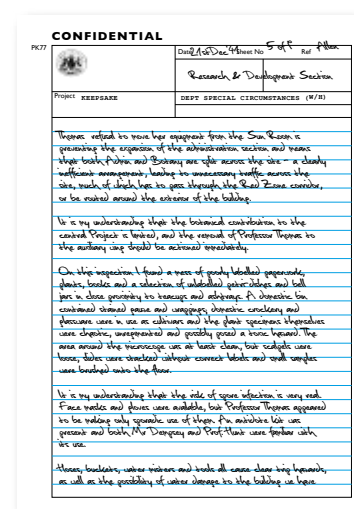 CONFIDENTIAL
PK77
Date 21st Dec '41 Sheet No 5 of Ref Allen
Research & Development Section
Project KEEPSAKE DEPT SPECIAL CIRCUMSTANCES (W/H)
Thomas' refusal to move her equipment from the Sun Room is
preventing the expansion of the administration section and means
that both Admin and Botany are split across the site - a clearly
inefficient arrangement, leading to unnecessary traffic across the
site, much of which has to pass through the Red Zone corridor,
or be routed around the exterior of the building.
It is my understanding that the botanical contribution to the
central Project is limited, and the removal of Professor Thomas to
the auxiliary wing should be actioned immediately.
On this inspection I found a mess of poorly labelled paperwork,
plants, books and a selection of unlabelled petri dishes and bell
jars in close proximity to teacups and ashtrays. A domestic bin
contained stained gauze and wrappings, domestic crockery and
glassware were in use as cultivars and the plant specimens themselves
were chaotic, unregimented and possibly posed a toxic hazard. The
area around the microscope was at least clean, but scalpels were
loose, slides were stacked without correct labels and small samples
were brushed onto the floor.
It is my understanding that the risk of spore infection is very real.
Face masks and gloves were available, but Professor Thomas appeared
to be making only sporadic use of them. An antidote kit was
present and both Mr Dempsey and Prof. Hunt were familiar with
its use.
Hoses, buckets, water misters and tools all cause clear trip hazards,
as well as the possibility of water damage to the building we have